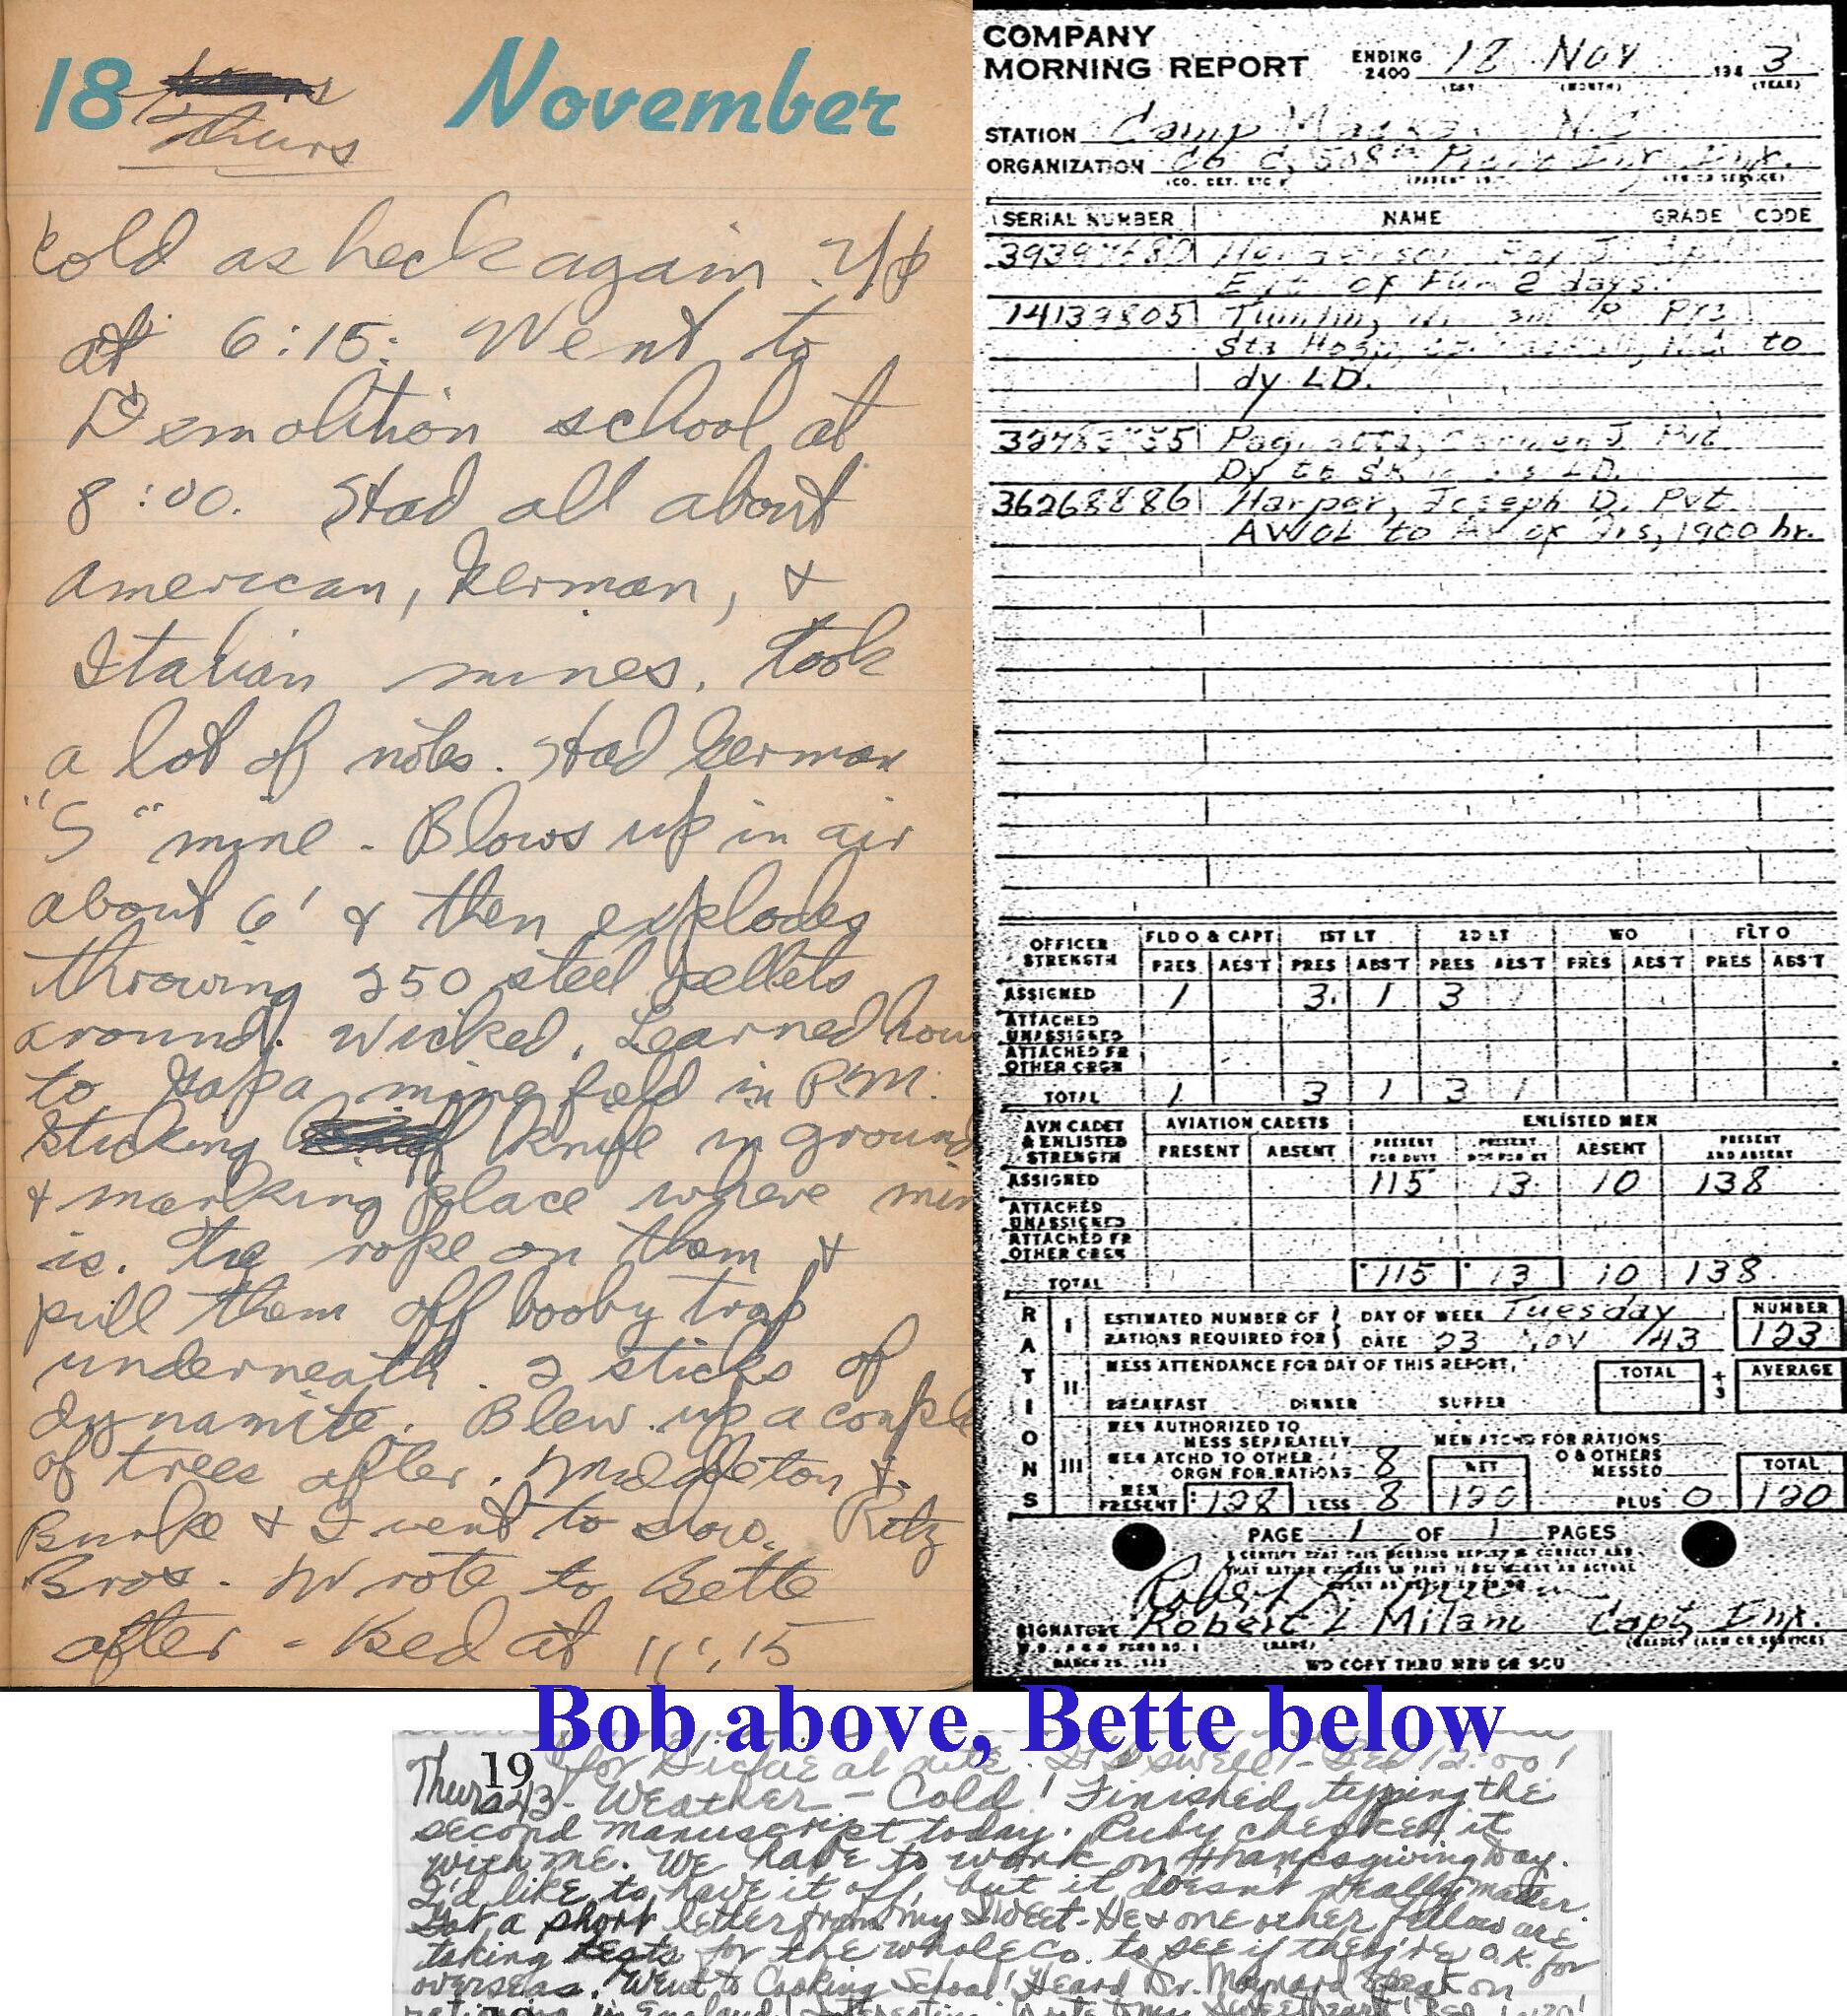 18 Thurs November
Cold as heck again. Up
at 6:15. Went to
Demolition school at
8:00. Had all about
American, German, &
Italian mines. Took
a lot of notes. Had German
"S" mine - Blows up in air
about 6' & then explodes
throwing 250 steel pellets
around. Wicked. Learned how
to gap a mine field in P.M.
Sticking knife in ground
& marking place where min
is. Tie rope on them &
pull them off booby trap
underneath. 2 sticks of
dynamite. Blew up a couple
of trees after. Middleton &
Burke & I went to show. Ritz
Bros. Wrote to Bette
after - Bed at 11:15
COMPANY
MORNING REPORT ENDING 2400 18 Nov 194 3
(DAY) (MONTH) (YEAR)
STATION Camp N.C.
ORGANIZATION Co C, 508th Inf.
(CO. DET. ETC.) (PARENT (ARM OR SERVICE)
SERIAL NUMBER NAME GRADE CODE
J.
of Fur 2 days.
14139805 Pvt
Sta Hosp to
dy LD.
J. Pvt
Dy to LD.
36268886 Harper, Joseph D. Pvt
AWOL to 1900 hr.
OFFICER STRENGTH FLD O & CAPT 1ST LT 2D LT WO FLT O
PRES ABS'T PRES ABS'T PRES ABS'T PRES ABS'T PRES ABS'T
ASSIGNED 1 3 1 3 1
ATTACHED UNASSIGNED
ATTACHED FR OTHER ORGN
TOTAL 1 3 1 3 1
AVN CADET & ENLISTED STRENGTH AVIATION CADETS ENLISTED MEN
PRESENT ABSENT PRESENT FOR DUTY PRESENT NOT FOR DY ABSENT PRESENT AND ABSENT
ASSIGNED 115 13 10 138
ATTACHED UNASSIGNED
ATTACHED FR OTHER ORGN
TOTAL 115 13 10 138
RATIONS
I ESTIMATED NUMBER OF RATIONS REQUIRED FOR DAY OF WEEK Tuesday NUMBER
DATE 23 Nov /43 123
II MESS ATTENDANCE FOR DAY OF THIS REPORT, TOTAL ÷ 3 AVERAGE
BREAKFAST DINNER SUPPER
III MEN AUTHORIZED TO MESS SEPARATELY MEN ATCHD FOR RATIONS
MEN ATCHD TO OTHER ORGN FOR RATIONS 8 NET O & OTHERS MESSED TOTAL
MEN PRESENT 128 LESS 8 120 PLUS 0 120
PAGE 1 OF 1 PAGES
I CERTIFY THAT THIS MORNING REPORT IS CORRECT AND
SIGNATURE Robert L Milam Capt Inf.
(NAME) (GRADE) (ARM OR SERVICE)
WD COPY THRU MRU OR SCU
Bob above, Bette below
for Dickie at nite. It's swell! - Bed 12:00!
Thurs 1943 - Weather - Cold! Finished typing the
second manuscript today. Ruby checked it
with me. We have to work on Thanksgiving Day.
I'd like to have it off, but it doesn't really matter.
Got a short letter from my Sweet - He & one other fellow are
taking tests for the whole co. to see if they're O.K. for
overseas. Went to Cooking School! Heard Dr. Maynard speak on
rationing in England! Interesting.